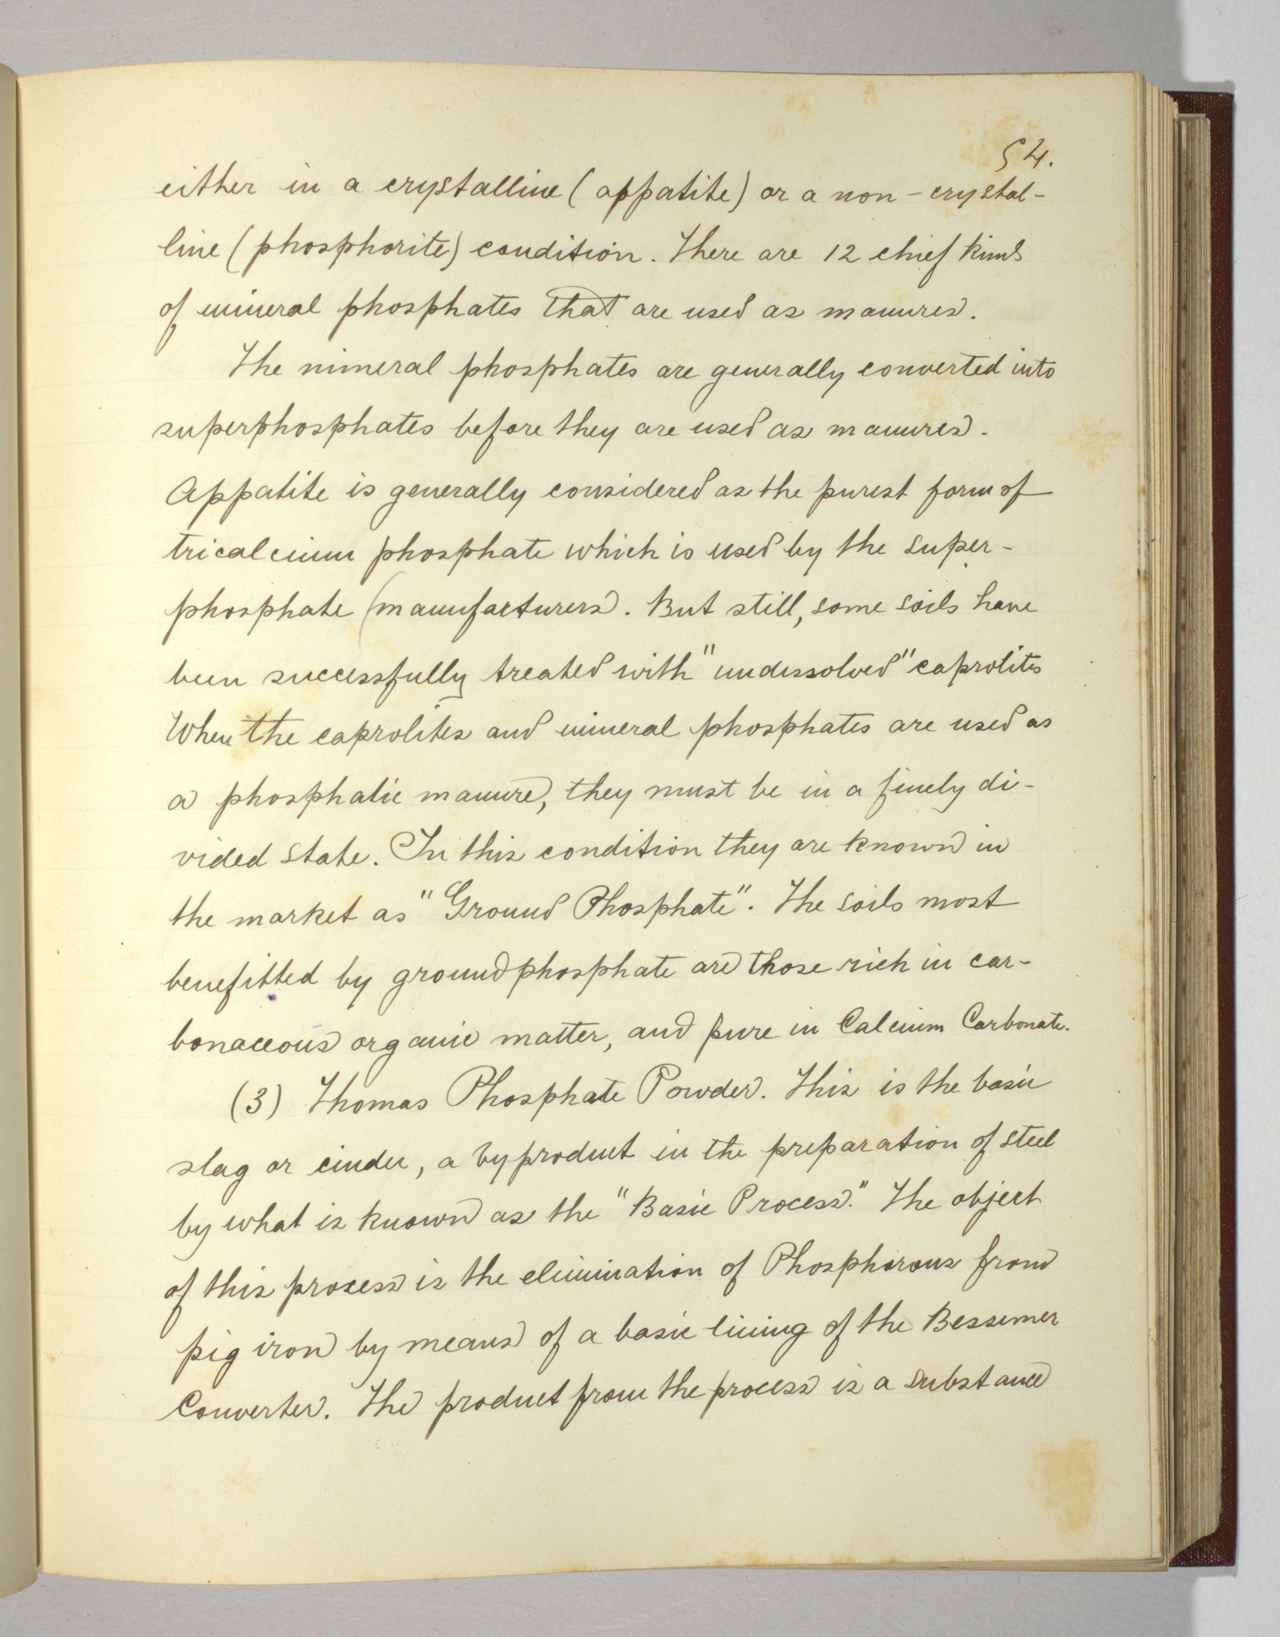 54.
either in a crystalline (appatite) or a non-crystal-
line (phosphorite) condition. There are 12 chief kinds
of mineral phosphates that are used as manures.
The mineral phosphates are generally converted into
superphosphates before they are used as manures.
Appatite is generally considered as the purest form of
tricalcium phosphate which is used by the super-
phosphate manufacturers. But still, some soils have
been successfully treated with "undissolved" caprolites
When the caprolites and mineral phosphates are used as
a phosphatic manure, they must be in a finely di-
vided state. In this condition they are known in
the market as "Ground Phosphate". The soils most
benefitted by ground phosphate are those rich in car-
bonaceous organic matter, and pure in Calcium Carbonate.
(3) Thomas Phosphate Powder. This is the basic
slag or cinder, a byproduct in the preparation of steel
by what is known as the "Basic Process." The object
of this process is the elimination of Phosphorous from
pig iron by means of a basic lining of the Bessemer
Converter. The product from the process is a substance